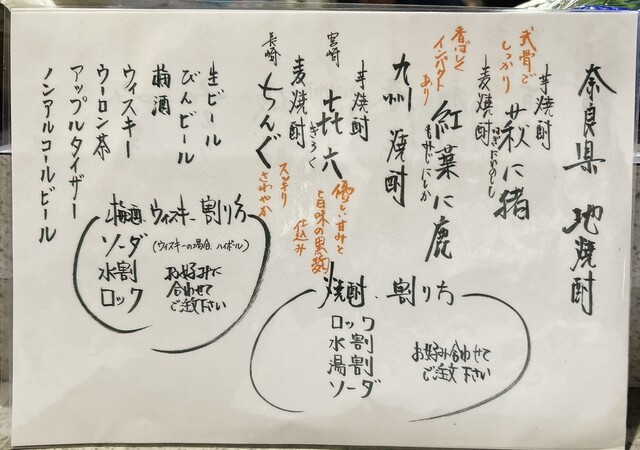 奈良県 地焼酎
芋焼酎 萩に猪
はぎにいのしし
武骨で
しっかり
麦焼酎 紅葉に鹿
もみじにしか
香ばしく
インパクト
あり
九州焼酎
芋焼酎
宮崎 㐂六
きろく
優しい甘みと
旨味の黒麹
仕込み
麦焼酎
長崎 ちんぐ
スッキリ
さわやか
生ビール
びんビール
梅酒
ウィスキー
ウーロン茶
アップルタイザー
ノンアルコールビール
焼酎 割り方
ロック
水割
湯割
ソーダ
お好み合わせて
ご注文下さい
梅酒 ウィスキー 割り方
ソーダ
(ウィスキーの場合、ハイボール)
水割
ロック
お好みに
合わせて
ご注文下さい